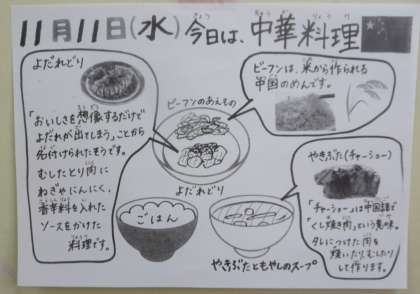 11月11日(水)今日は、中華料理
よだれどり
「おいしさを想像するだけで
よだれが出てしまう」ことから
名付けられたそうです。
むしたとり肉に
ねぎやにんにく、
香辛料を入れた
ソースをかけた
料理です。
ビーフンのあえもの
よだれどり
ごはん
やきぶたともやしのスープ
ビーフンは、米から作られる
中国のめんです。
やきぶた(チャーシュー)
「チャーシュー」は中国語で
「くし焼き肉」という意味。
タレにつけた肉を
焼いたり、むしたり
して作ります。